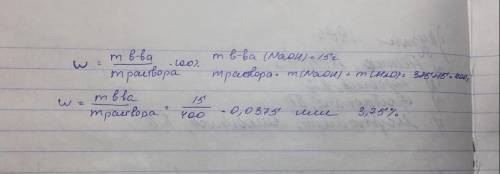 w = m в-ва / m раствора · 100% m в-ва (NaOH) = 15г
m раствора = m(NaOH) + m(H2O) = 375+15=400г
w = m в-ва / m раствора = 15 / 400 = 0,0375 или 3,75%